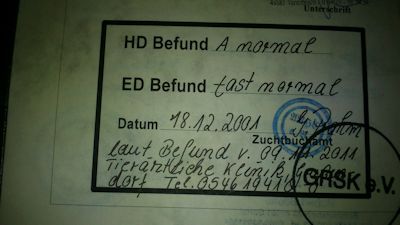 Unterschrift
HD Befund A normal
ED Befund fast normal
Datum 18.12.2001
Zuchtbuchamt
laut Befund v. 09. 2011
Tierärztliche Klinik
dorf Tel. 05461941
GHSK e.V.